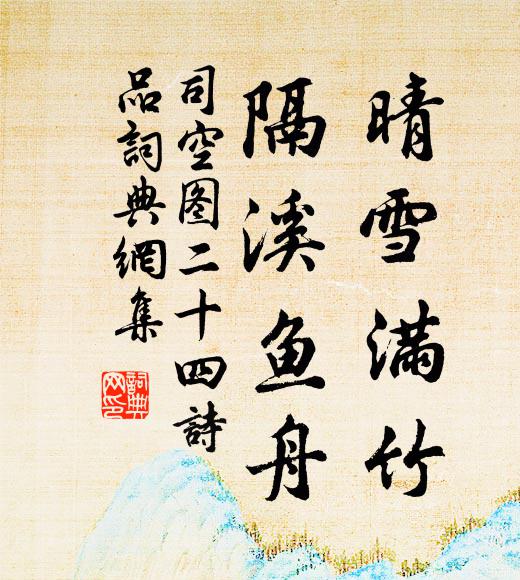 晴雪满竹
隔溪鱼舟
司空图二十四詩
品詞典網集
詞典
网印